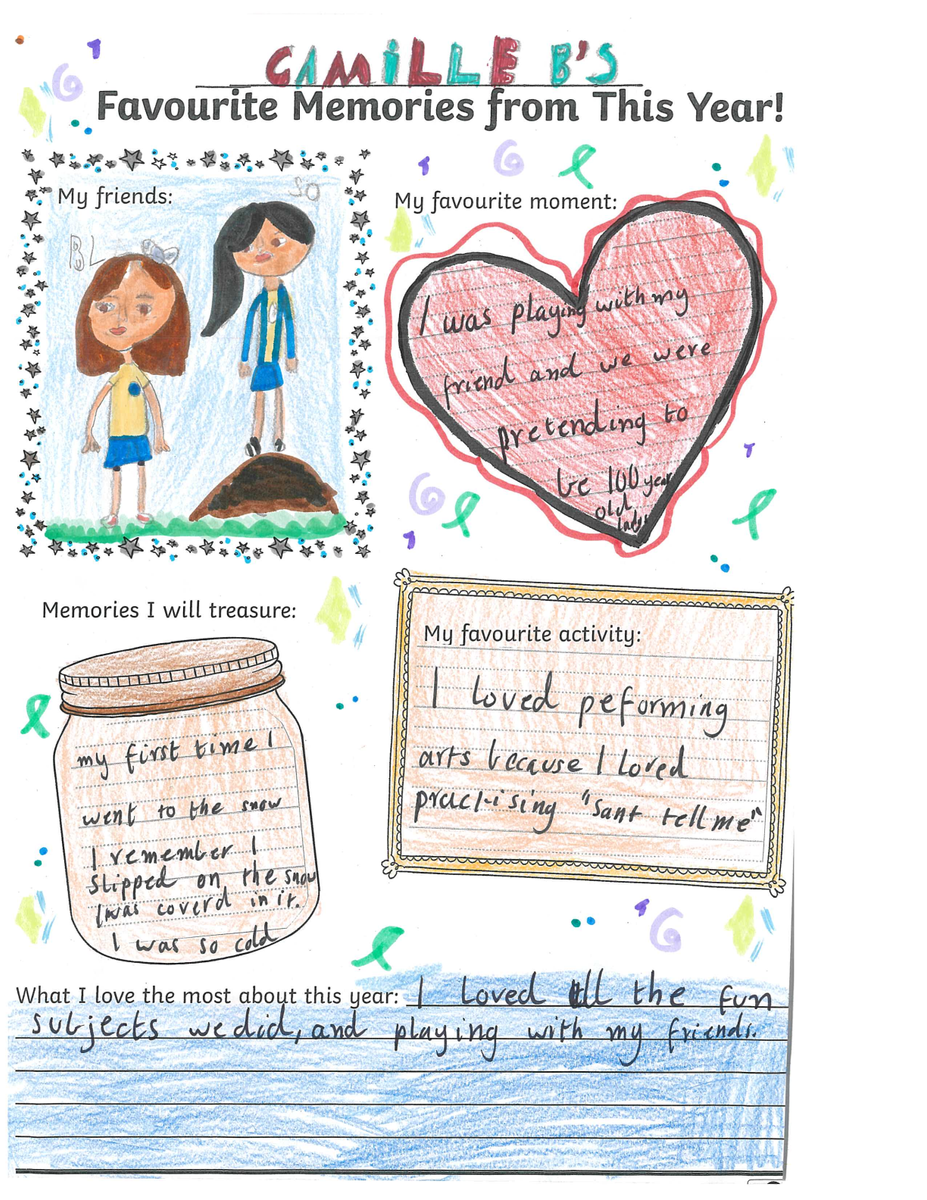 CAMiLLE B'S
Favourite Memories from This Year!
My friends:
BL
SO
My favourite moment:
I was playing with my
friend and we were
pretending to
be 100 year
old
ladys
Memories I will treasure:
my first time I
went to the snow
I remember I
slipped on the snow
I was coverd in it.
I was so cold
My favourite activity:
I loved peforming
arts because I loved
practising "Sant tell me"
What I love the most about this year: I loved all the fun
subjects we did, and playing with my friends.